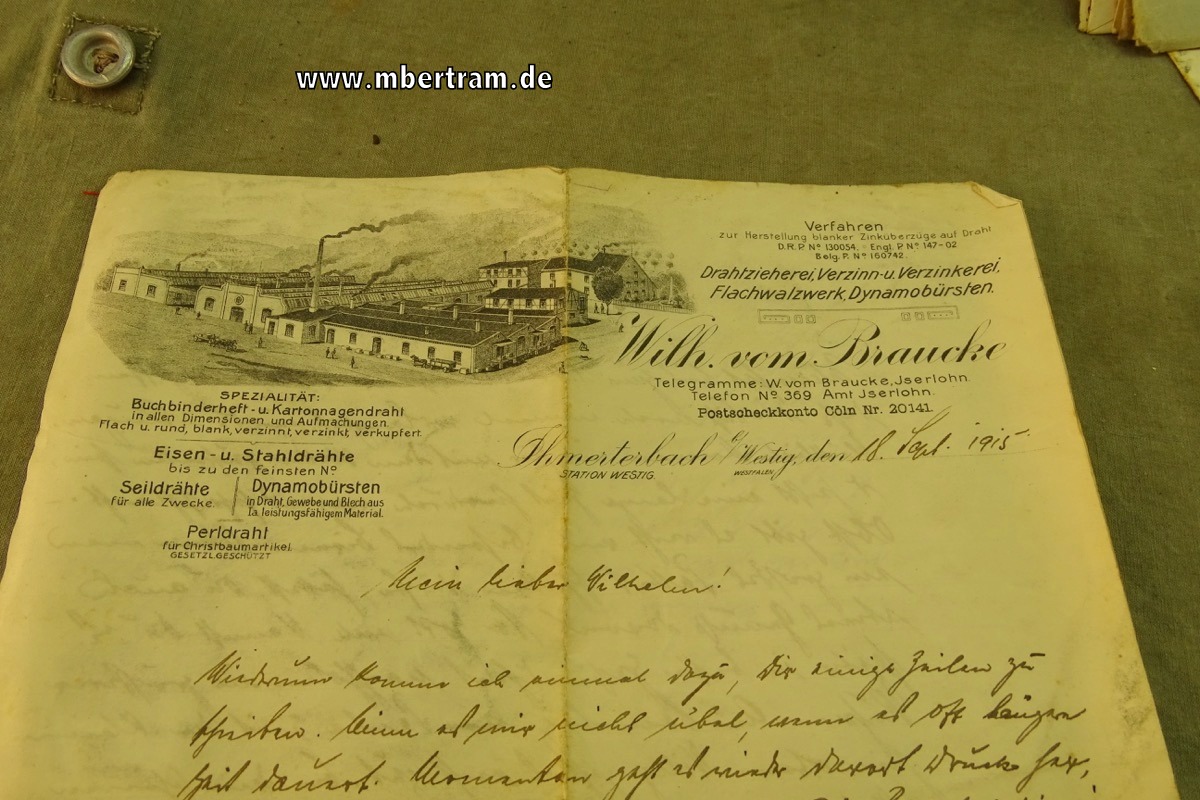 www.mbertram.de
Verfahren
zur Herstellung blanker Zinküberzüge auf Draht
D.R.P. Nº 130054. Engl. P. Nº 147-02
Belg. P. Nº 160742.
Drahtzieherei, Verzinn- u. Verzinkerei,
Flachwalzwerk, Dynamobürsten.
Wilh. vom Braucke
Telegramme: W. vom Braucke, Jserlohn.
Telefon Nº 369 Amt Jserlohn.
Postscheckkonto Cöln Nr. 20141.
SPEZIALITÄT:
Buchbinderheft- u. Kartonnagendraht
in allen Dimensionen und Aufmachungen.
Flach u. rund, blank, verzinnt, verzinkt, verkupfert.
Eisen- u. Stahldrähte
bis zu den feinsten Nº
Seildrähte
für alle Zwecke.
Dynamobürsten
in Draht, Gewebe und Blech aus
Ia. leistungsfähigem Material.
Perldraht
für Christbaumartikel.
GESETZL. GESCHÜTZT
Jhmerterbach b/Westig, den 18. Sept. 1915
STATION WESTIG. WESTFALEN
Mein lieber Wilhelm!
Wiederum komme ich einmal dazu, Dir einige Zeilen zu
schreiben. Nimm es mir nicht übel, wenn es oft längere
Zeit dauert. Momentan geht es wieder derart Druck her,